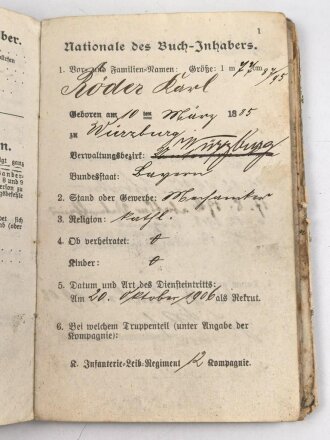 1
Nationale des Buch-Inhabers.
1. Vor- und Familien-Namen: Größe: 1 m 77 cm
Röder Karl
Geboren am 10 ten März 1885
zu Würzburg
Verwaltungsbezirk: Würzburg
Bundesstaat: Bayern
2. Stand oder Gewerbe: Mechaniker
3. Religion: kathl.
4. Ob verheiratet:
Kinder:
5. Datum und Art des Diensteintritts:
Am 20. Oktober 1906 als Rekrut.
6. Bei welchem Truppenteil (unter Angabe der
Kompagnie):
K. Infanterie-Leib-Regiment 12 Kompagnie.